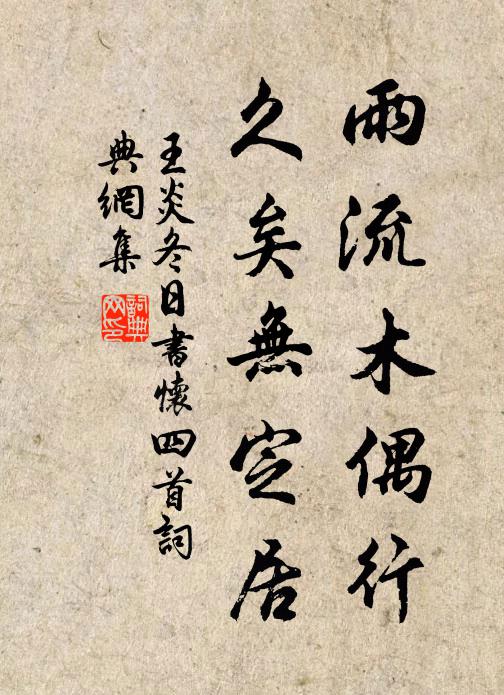 雨流木偶行
久矣無定居
王炎冬日書懷四首詞
典網集
詞典網印